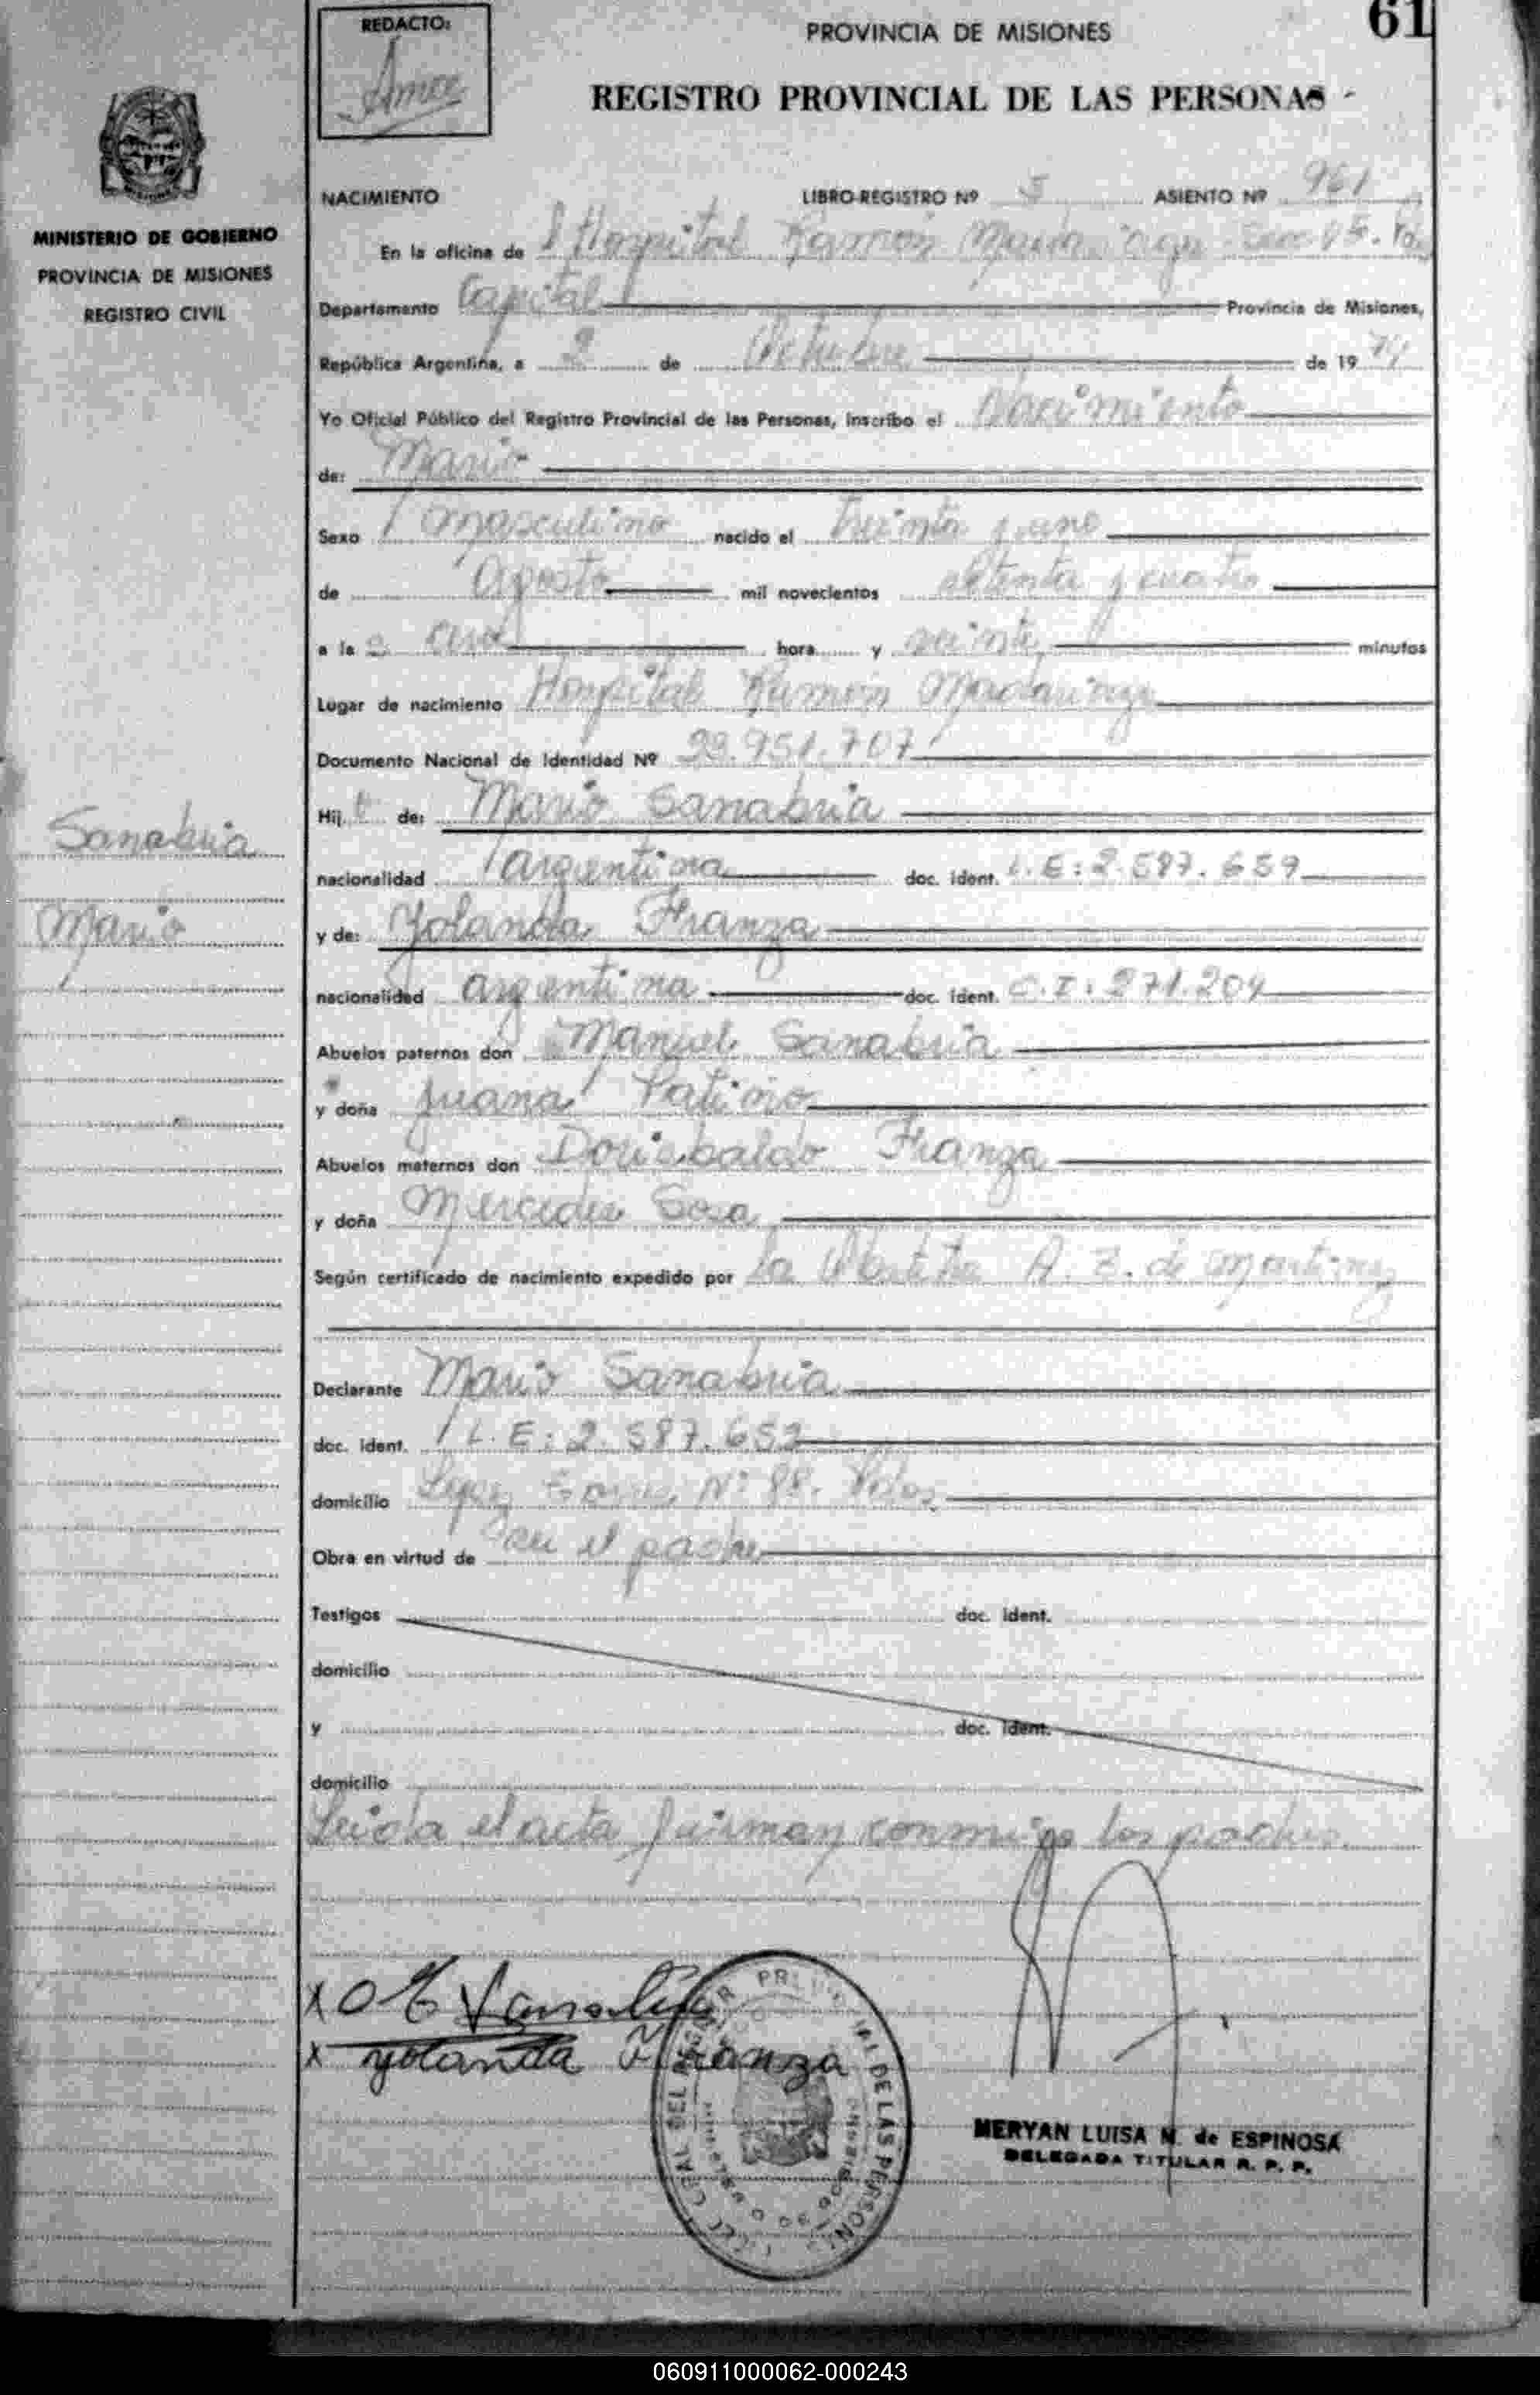 61
REDACTO:
PROVINCIA DE MISIONES
REGISTRO PROVINCIAL DE LAS PERSONAS
MINISTERIO DE GOBIERNO
PROVINCIA DE MISIONES
REGISTRO CIVIL
NACIMIENTO LIBRO-REGISTRO Nº 5 ASIENTO Nº 961
En la oficina de Hospital Ramón
Departamento Capital Provincia de Misiones,
República Argentina, a 2 de Octubre de 1974
Yo Oficial Público del Registro Provincial de las Personas, inscribo el Nacimiento
de: Mario
Sexo masculino nacido el treinta y uno
de Agosto mil novecientos setenta y cuatro
a la una hora y veinte minutos
Lugar de nacimiento Hospital Ramón Madariaga
Documento Nacional de Identidad Nº 23.951.707
Hijo de: Mario Sanabria
Sanabria
nacionalidad argentina doc. ident. L.E: 2.587.659
Mario
y de: Yolanda Franza
nacionalidad argentina doc. ident. C.I: 271.204
Abuelos paternos don Manuel Sanabria
y doña Juana Patiño
Abuelos maternos don Franza
y doña Mercedes Sosa
Según certificado de nacimiento expedido por la A. Z. de Martinez
Declarante Mario Sanabria
doc. ident. L.E: 2.587.652
domicilio Nº 88. Pdas
Obra en virtud de ser el padre
Testigos doc. ident.
domicilio
y doc. ident.
domicilio
Leida el acta firman conmigo los padres
X Sanabria
X Yolanda Franza
DE LAS PERSONAS
MERYAN LUISA N. de ESPINOSA
DELEGADA TITULAR R. P. P.
060911000062-000243